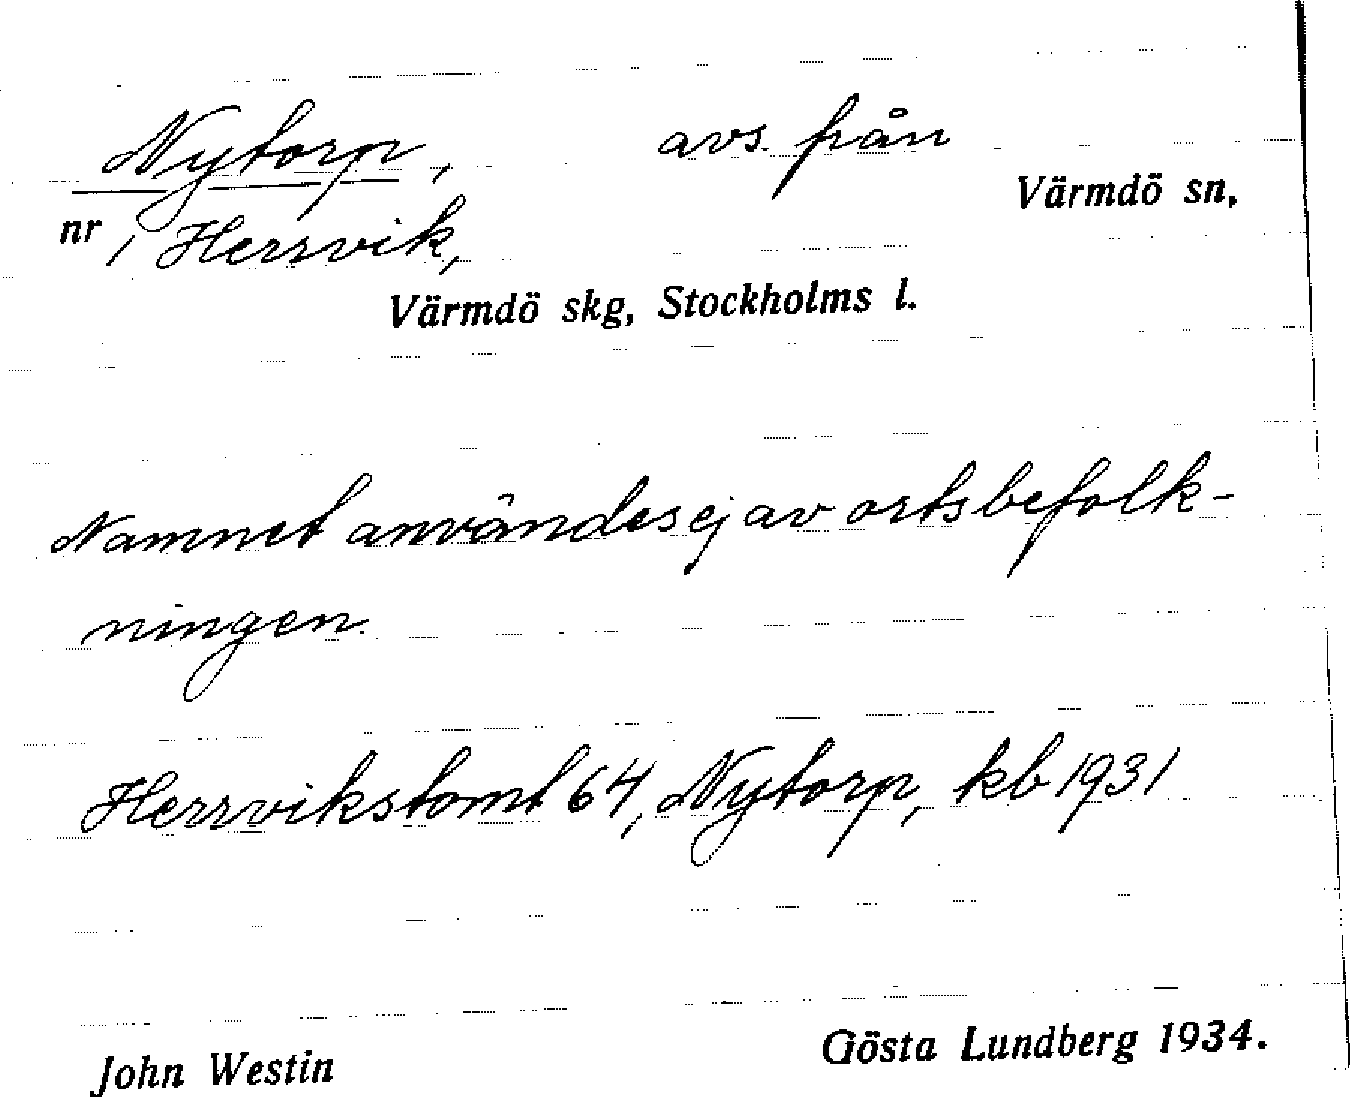 Nytorp, avs. från
Värmdö sn,
nr 1 Herrvik,
Värmdö skg, Stockholms l.
Namnet användes ej av ortsbefolk-
ningen.
Herrvikstomt 64, Nytorp, kb 1931
John Westin Gösta Lundberg 1934.